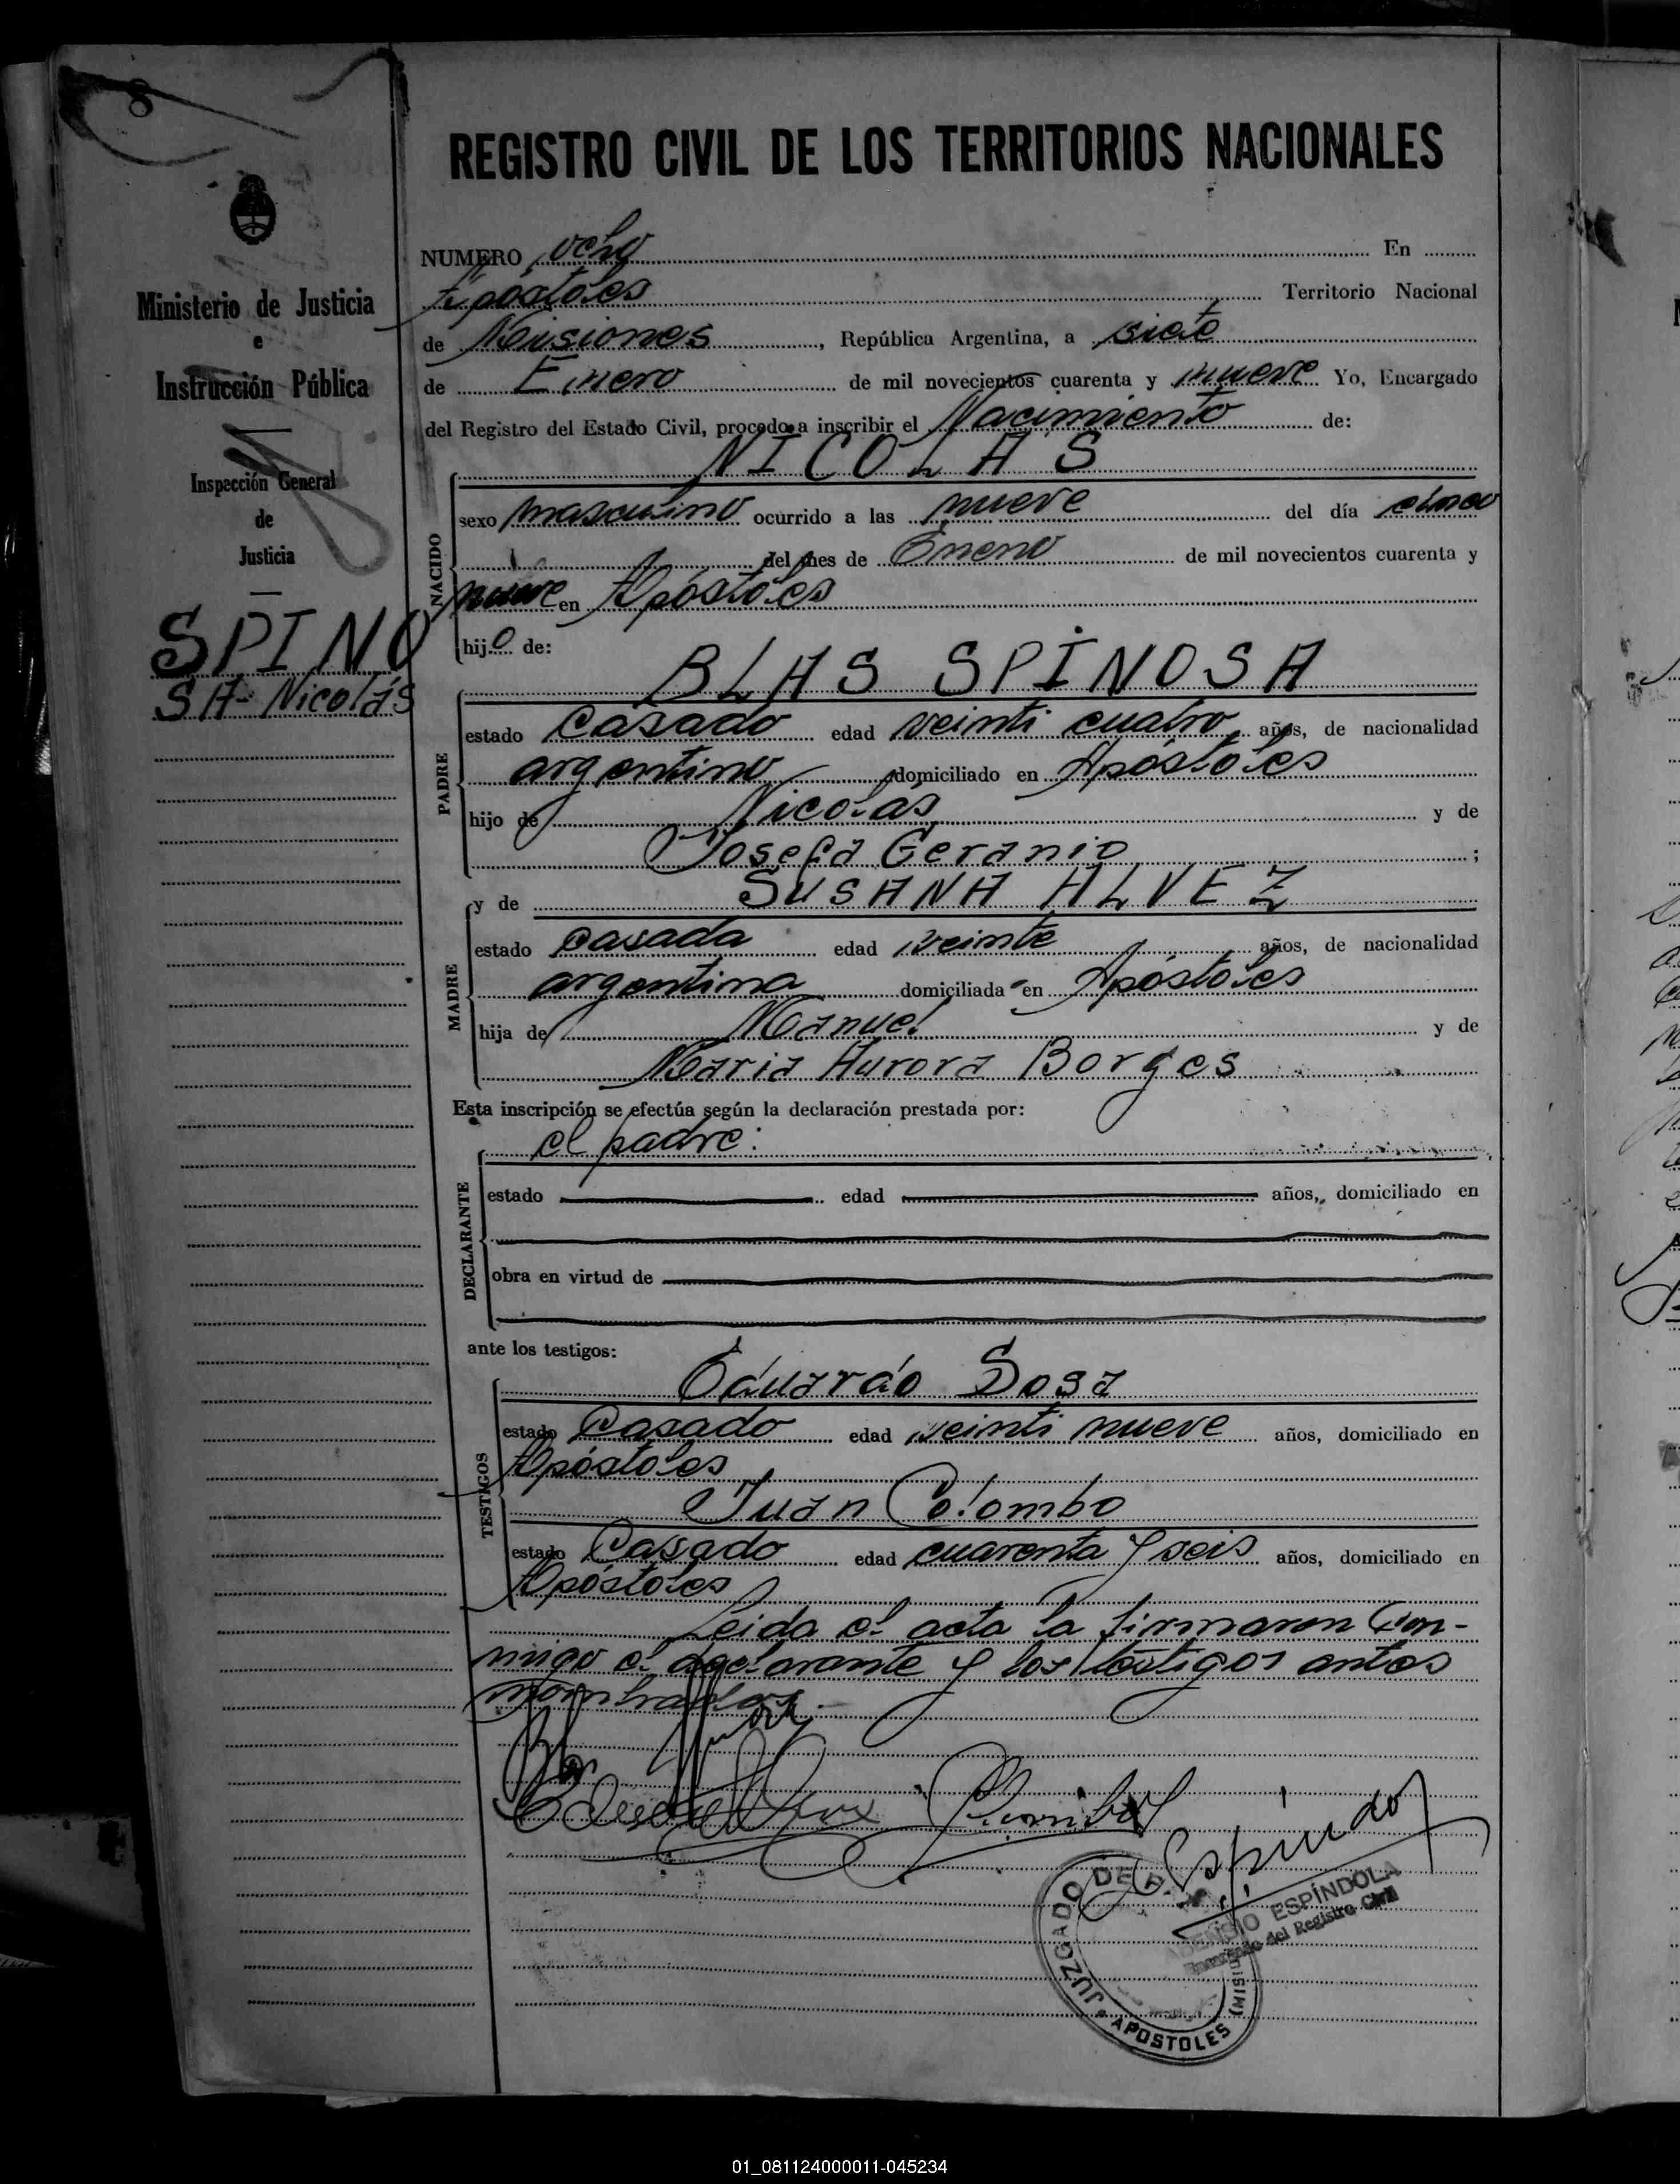 8
REGISTRO CIVIL DE LOS TERRITORIOS NACIONALES
Ministerio de Justicia
e
Instrucción Pública
Inspección General
de
Justicia
SPINO
SA- Nicolás
NUMERO ocho En
Apóstoles Territorio Nacional
de Misiones, República Argentina, a siete
de Enero de mil novecientos cuarenta y nueve Yo, Encargado
del Registro del Estado Civil, procedo a inscribir el Nacimiento de:
NICOLAS
NACIDO
sexo masculino ocurrido a las nueve del día cinco
del mes de Enero de mil novecientos cuarenta y
nueve en Apóstoles
hijo de:
BLAS SPINOSA
PADRE
estado Casado edad veinti cuatro años, de nacionalidad
argentino domiciliado en Apóstoles
hijo de Nicolás y de
Josefa Geranio;
y de SUSANA ALVEZ
MADRE
estado casada edad veinte años, de nacionalidad
argentina domiciliada en Apóstoles
hija de Manuel y de
Maria Aurora Borges
Esta inscripción se efectúa según la declaración prestada por:
el padre:
DECLARANTE
estado edad años, domiciliado en
obra en virtud de
ante los testigos:
Eduardo Sosa
TESTIGOS
estado Casado edad veinti nueve años, domiciliado en
Apóstoles
Juan Colombo
estado Casado edad cuarenta y seis años, domiciliado en
Apóstoles
Leida el acta la firmaron con-
migo el declarante y los testigos antes
nombrados.-
Espíndola
JUZGADO DE P.
ASENSIO ESPÍNDOLA
Encargado del Registro Civil
APOSTOLES (MISIO
01_081124000011-045234